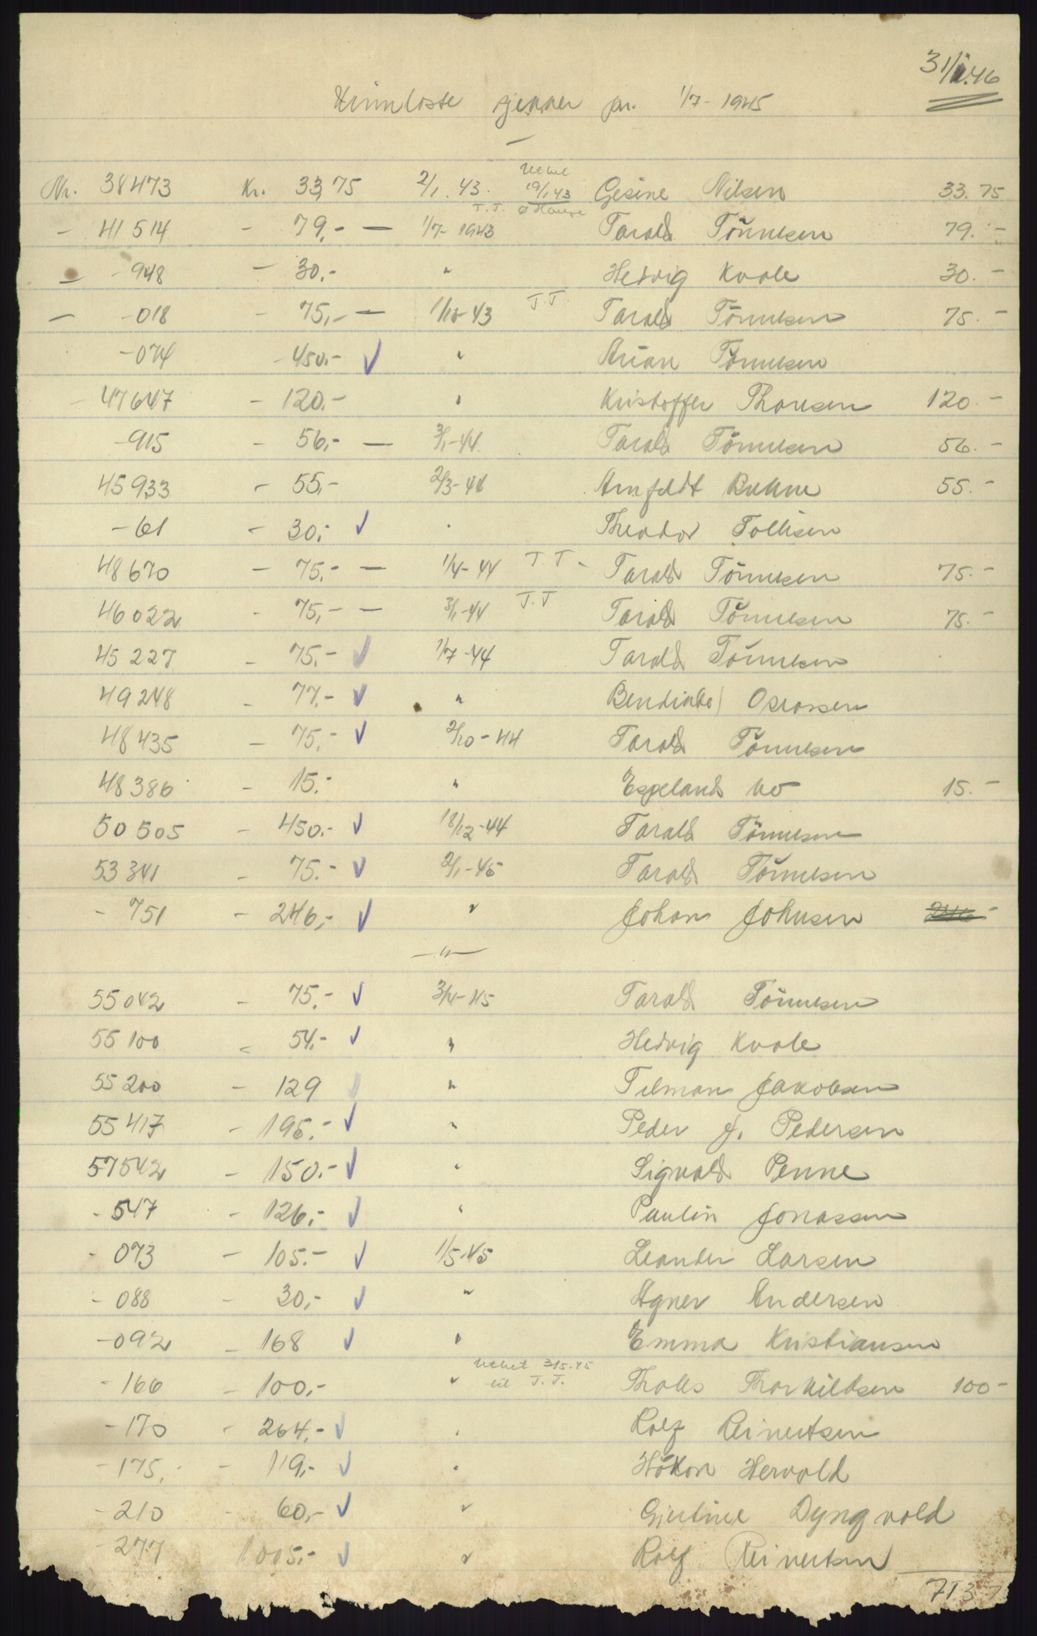 31/1.46
Uinnløste sjekker pr. 1/7-1945
Nr. 38473 Kr. 33,75 2/1.43. 19/1.43 Gesine Nilsen 33.75
- 41514 - 79,- - 1/7-1943 T.T. Tarald Tönnesen 79.-
- -948 - 30.- " Hedvig Kvale 30.-
- -018 - 75,- - 1/10-43 T.T. Tarald Tönnesen 75.-
-074 -450.- ✓ " Tönnesen
- 47647 - 120.- " Kristoffer Thorsen 120.-
-915 - 56,- - 3/1-44 Tarald Tönnesen 56.-
45933 - 55,- 2/3-44 55.-
-61 - 30,- ✓ " Theodor
48670 - 75.- - 1/4-44 T.T. Tarald Tönnesen 75.-
46022 - 75,- - 3/1-44 T.T Tarald Tönnesen 75.-
45227 - 75.- ✓ 1/7-44 Tarald Tönnesen
49248 - 77.- ✓ "
48435 - 75,- ✓ 2/10-44 Tarald Tönnesen
48386 - 15.- " Espeland 15.-
50505 - 450.- ✓ 18/12-44 Tarald Tönnesen
53341 - 75.- ✓ 2/1-45 Tarald Tönnesen
- 751 - 246,- ✓ " Johan Johnsen 246 -
-"-
55042 - 75.- ✓ 3/4-45 Tarald Tönnesen
55100 - 54.- ✓ " Hedvig Kvale
55200 - 129 ✓ " Tilman Jakobsen
55417 - 195.- ✓ " Peder J. Pedersen
57542 - 150.- ✓ " Sigvald Penne
- 547 - 126,- ✓ " Paulin Jonassen
- 073 - 105.- ✓ 1/5-45 Leander Larsen
- 088 - 30,- ✓ " Agner Andersen
-092 - 168 ✓ " Emma Kristiansen
- 166 - 100,- " 3/5.45 til T.T. Thorkildsen 100-
- 170 - 264,- ✓ " Rolf Reinertsen
- 175, - 119,- ✓ " Håkon Hervold
- 210 - 60,- ✓ " Dyngvold
- 277 1005,- ✓ " Rolf Reinertsen
713.7